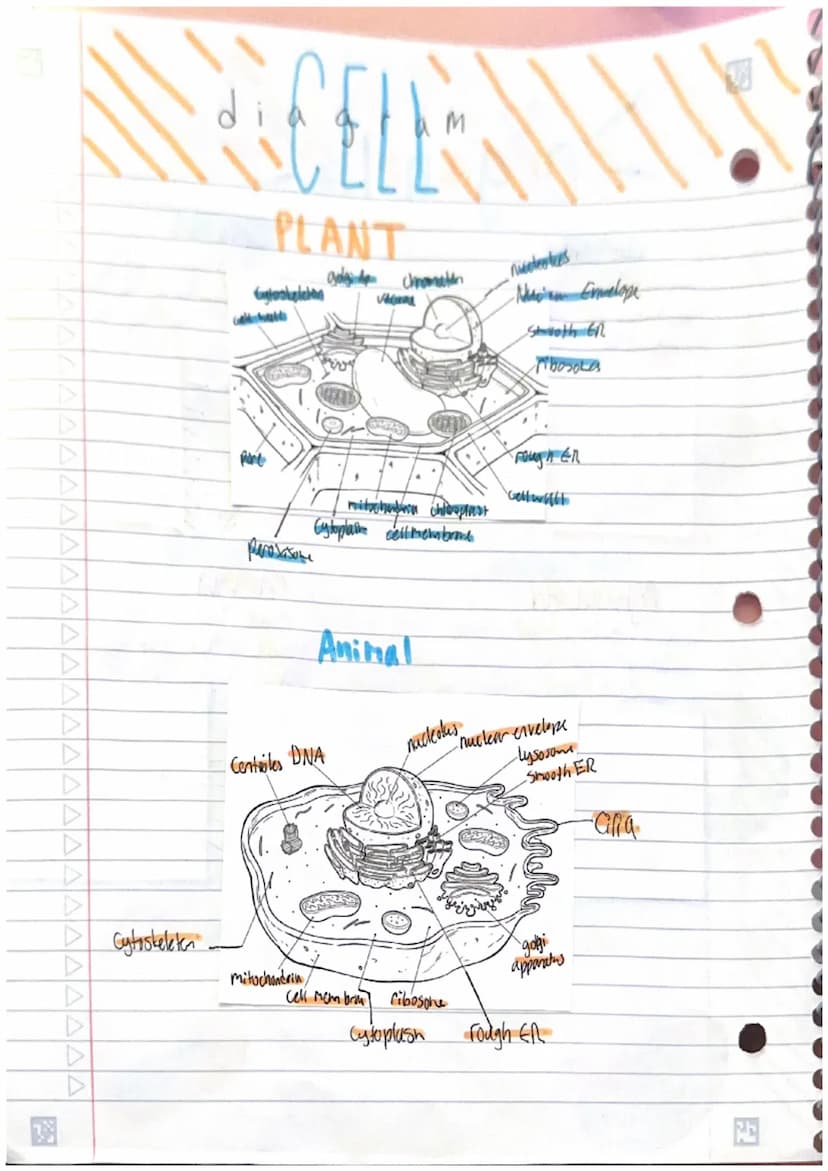 CELL
diagram
PLANT
golgi Ap
chromatin
nucleolus
cytoskeleton
vacuole
cell wall
smooth ER
ribosomes
rough ER
cell wall
mitochondria
chloroplast
cytoplasm
cell membrane
peroxisome
Animal
nucleolus
nuclear envelope
Centrioles
DNA
lysosome
smooth ER
Cilia
Cytoskeleton
golgi
apparatus
mitochondria
cell membran
ribosome
cytoplasm
rough ER